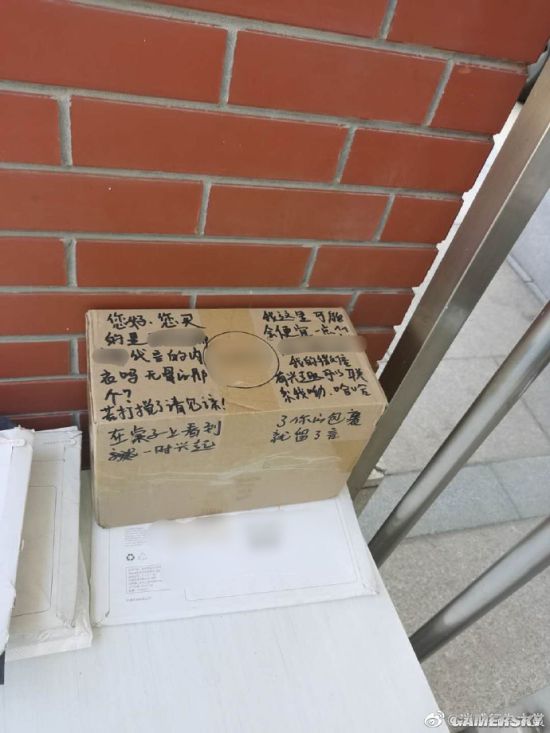 您好、您买
的是
代言的内
衣吗 无骨的那
个?
若打扰了请见谅!
我这里可能
会便宜一点
我的微信是
有兴趣可以联
系我呦、哈哈
在桌子上看到 了你的包裹
一时兴起 就留了言
GAMERSKY